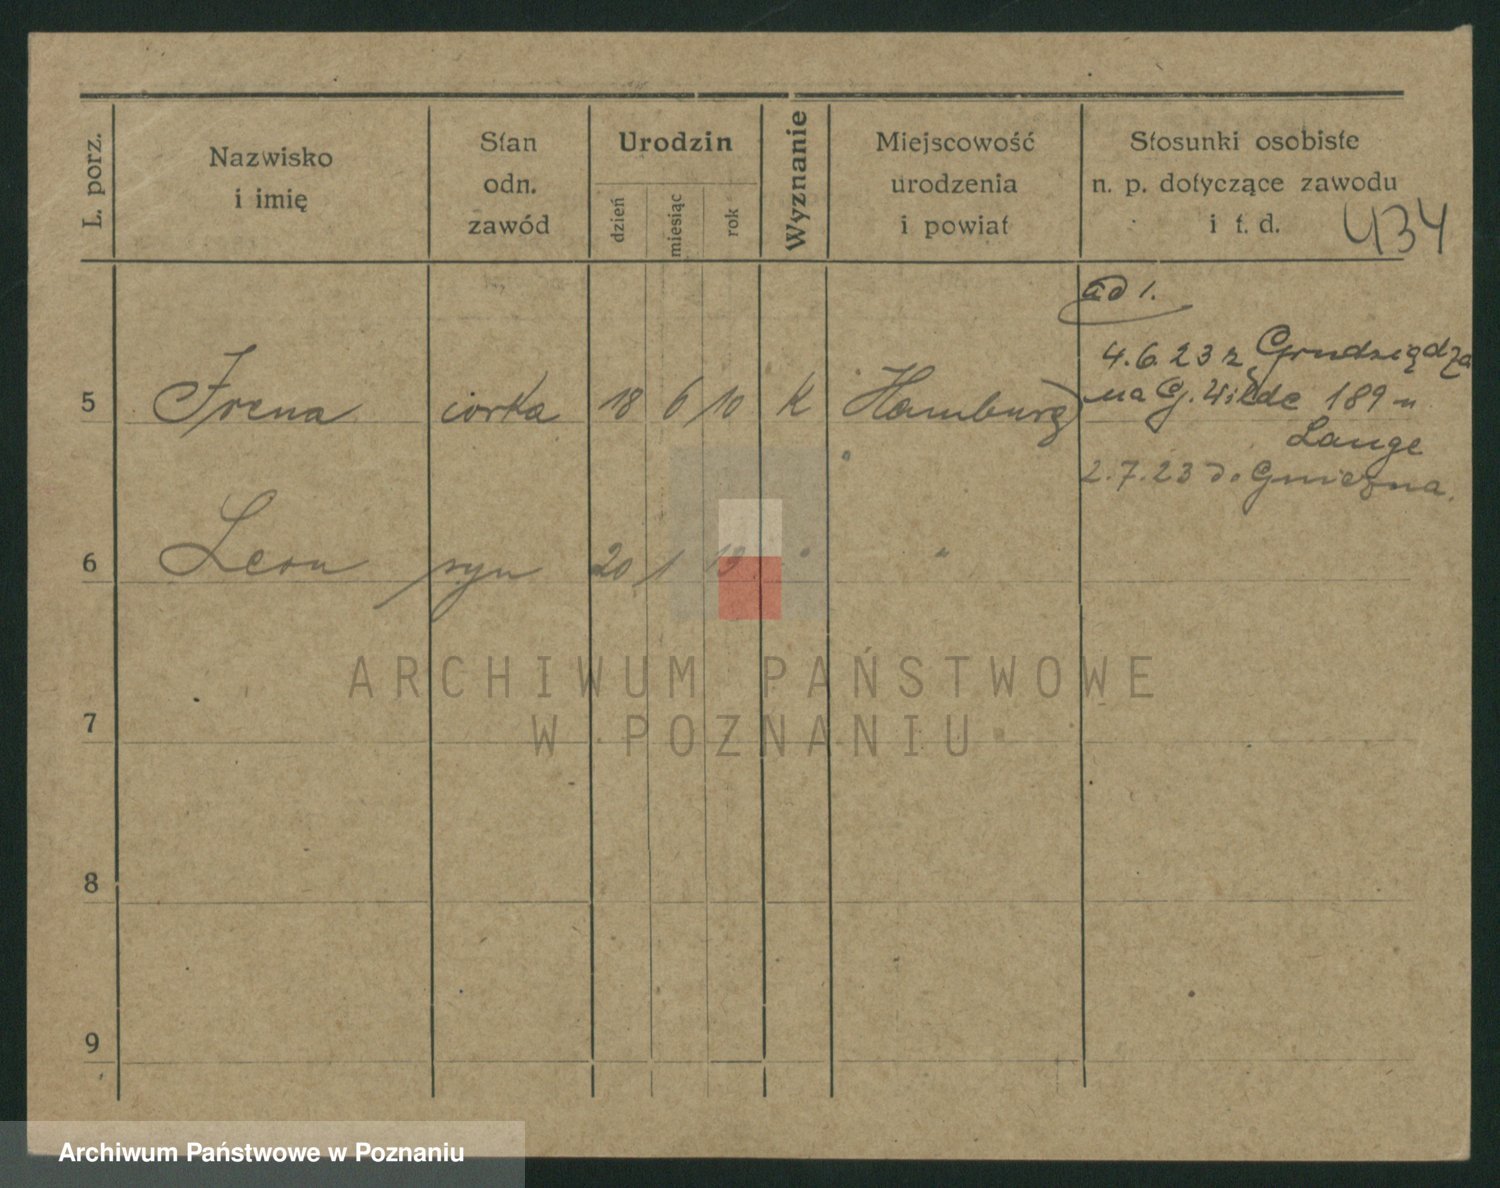 L. porz.
Nazwisko
i imię
Stan
odn.
zawód
Urodzin
dzień
miesiąc
rok
Wyznanie
Miejscowość
urodzenia
i powiat
Stosunki osobiste
n. p. dotyczące zawodu
i t. d.
434
ad 1.
4.6.23 z Grudziądza
na G. Wilde 189 u
Lange
2.7.23 do Gniezna.
5 Irena córka 18 6 10 K Hamburg
6 Leon syn 20 1 13 " "
7
8
9
ARCHIWUM PAŃSTWOWE
W POZNANIU
Archiwum Państwowe w Poznaniu